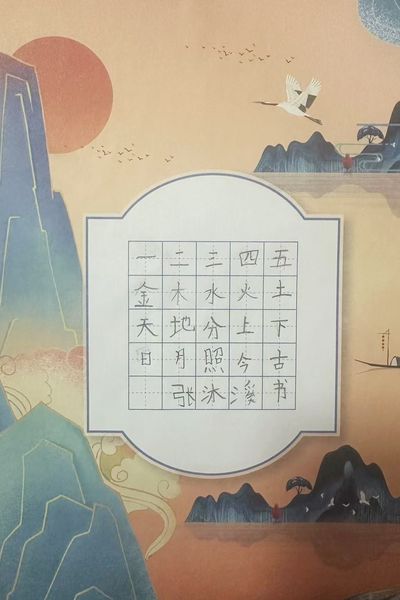 一二三四五
金木水火土
天地分上下
日月照今古
张沐溪书